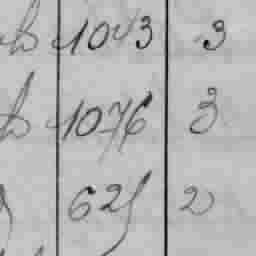 1043 3
1076 3
625 2